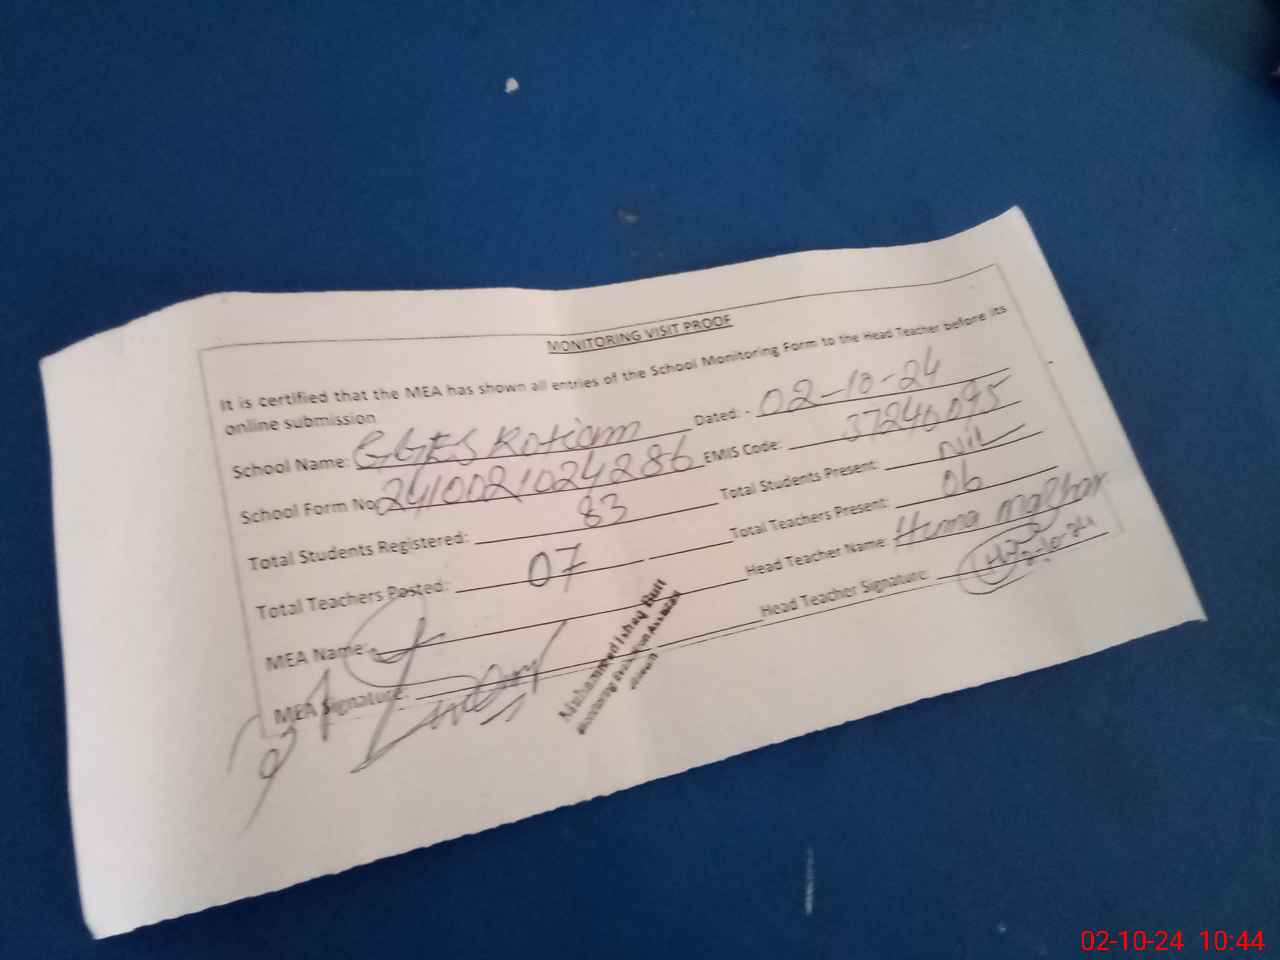 MONITORING VISIT PROOF
It is certified that the MEA has shown all entries of the School Monitoring Form to the Head Teacher before its
online submission.
School Name: GGES Kotiam Dated: - 02-10-24
School Form No 2410021024286 EMIS Code: 37240095
Total Students Registered: 83 Total Students Present: Nil
Total Teachers Posted: 07 Total Teachers Present: 06
MEA Name: Head Teacher Name: Huma
MEA Signature: Head Teacher Signature: 2-10-24
Muhammad Ishaq Butt
Monitoring Evaluation Assistant
02-10-24 10:44